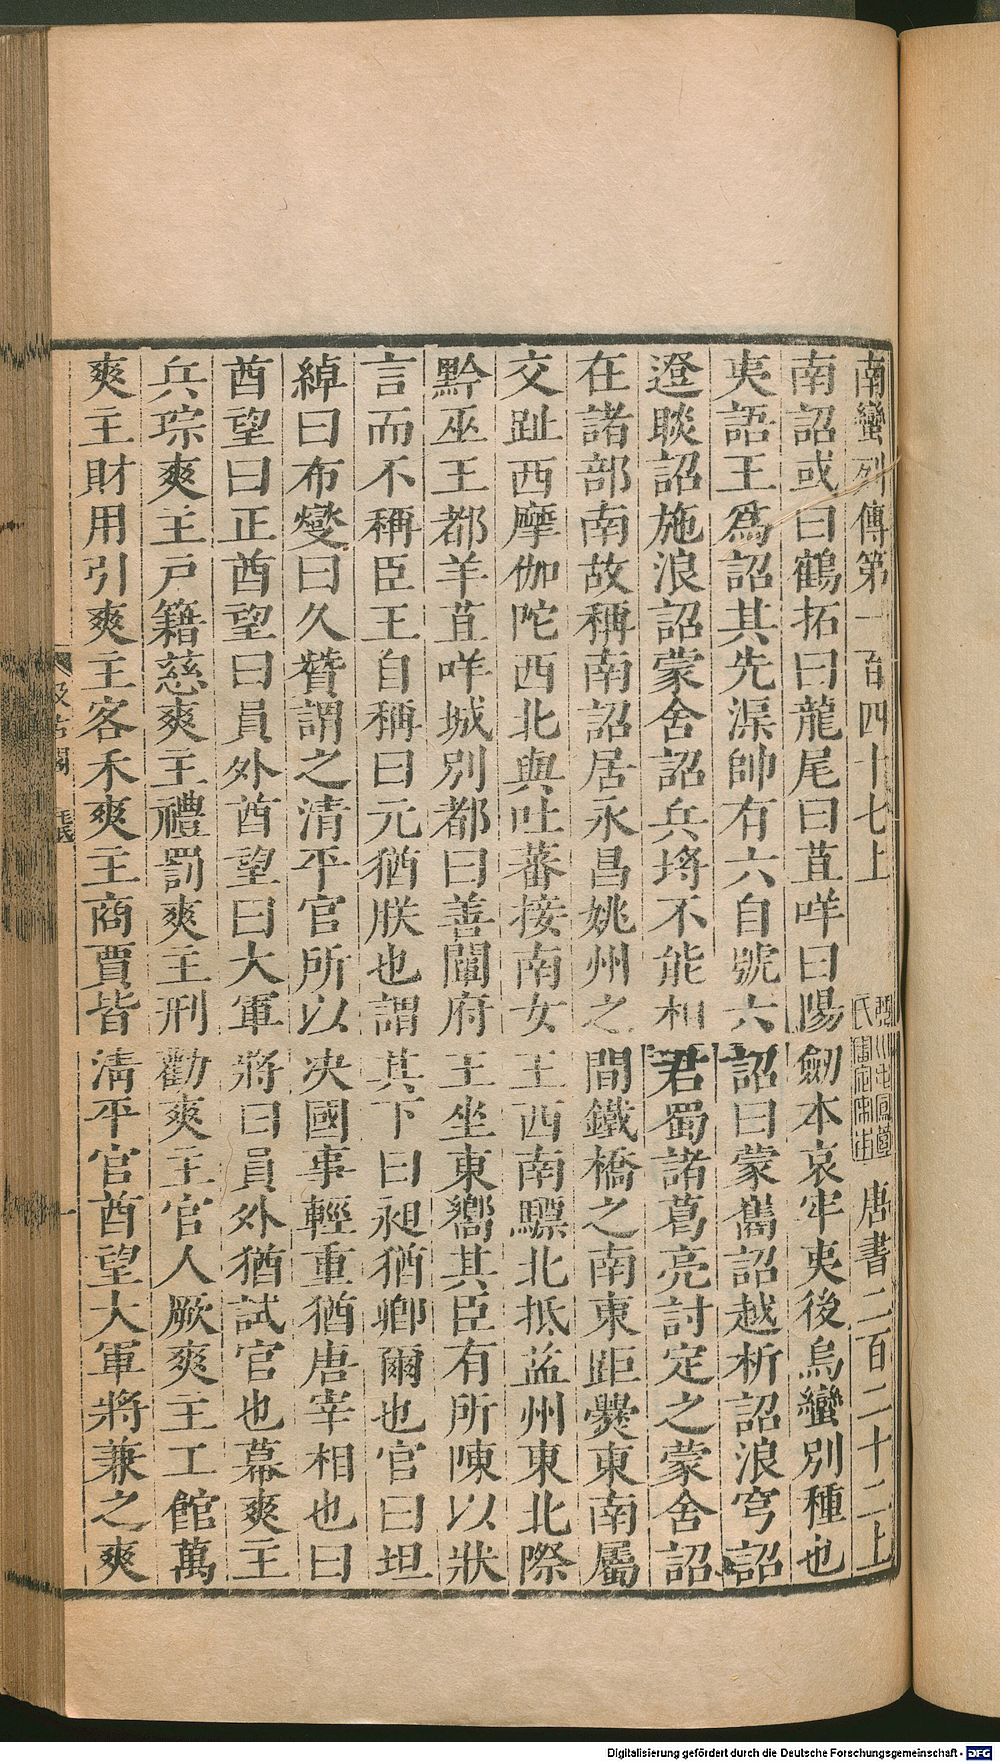 南蠻列傳第一百四十七上　唐書二百二十二上
南詔或曰鶴拓曰龍尾曰苴咩曰陽劒本哀牢夷後烏蠻別種也
夷語王爲詔其先渠帥有六自號六詔曰蒙巂詔越析詔浪穹詔
邆睒詔施浪詔蒙舍詔兵埒不能相君蜀諸葛亮討定之蒙舍詔
在諸部南故稱南詔居永昌姚州之間鐵橋之南東距爨東南屬
交趾西摩伽陀西北與吐蕃接南女王西南驃北抵益州東北際
黔巫王都羊苴咩城別都曰善闡府王坐東嚮其臣有所陳以狀
言而不稱臣王自稱曰元猶朕也謂其下曰昶猶卿爾也官曰坦
綽曰布爕曰久贊謂之清平官所以决國事輕重猶唐宰相也曰
酋望曰正酋望曰員外酋望曰大軍將曰員外猶試官也幕爽主
兵琮爽主戸籍慈爽主禮罰爽主刑勸爽主官人厥爽主工館萬
爽主財用引爽主客禾爽主商賈皆清平官酋望大軍將兼之爽
汲古閣
一
Digitalisierung gefördert durch die Deutsche Forschungsgemeinschaft - DFG